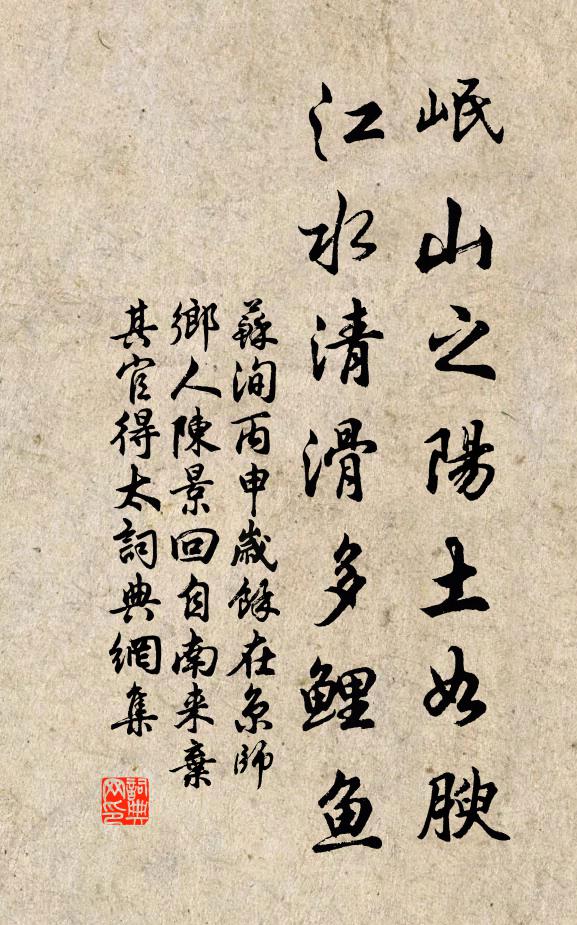 岷山之陽土如腴
江水清滑多鯉魚
蘇洵丙申歲餘在京師
鄉人陳景回自南來棄
其官得太詞典網集
詞典網印